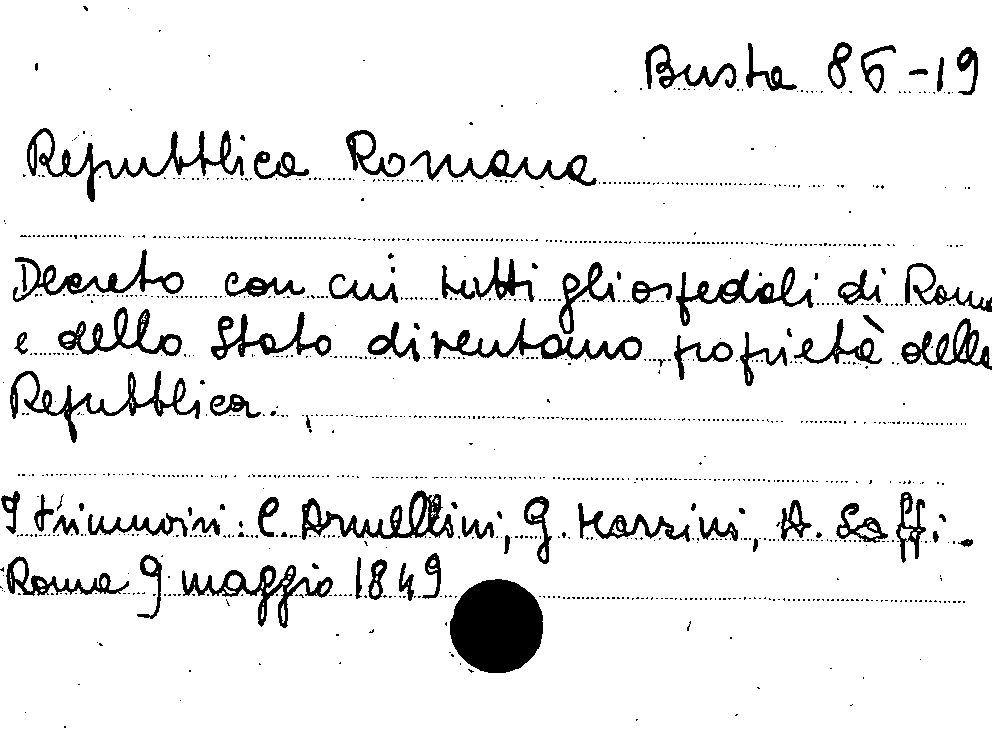 Busta 85-19
Repubblica Romana
Decreto con cui tutti gli ospedali di Roma
e dello Stato diventano proprietà della
Repubblica.
I triumviri: C. Armellini, G. Mazzini, A. Saffi.
Roma 9 maggio 1849